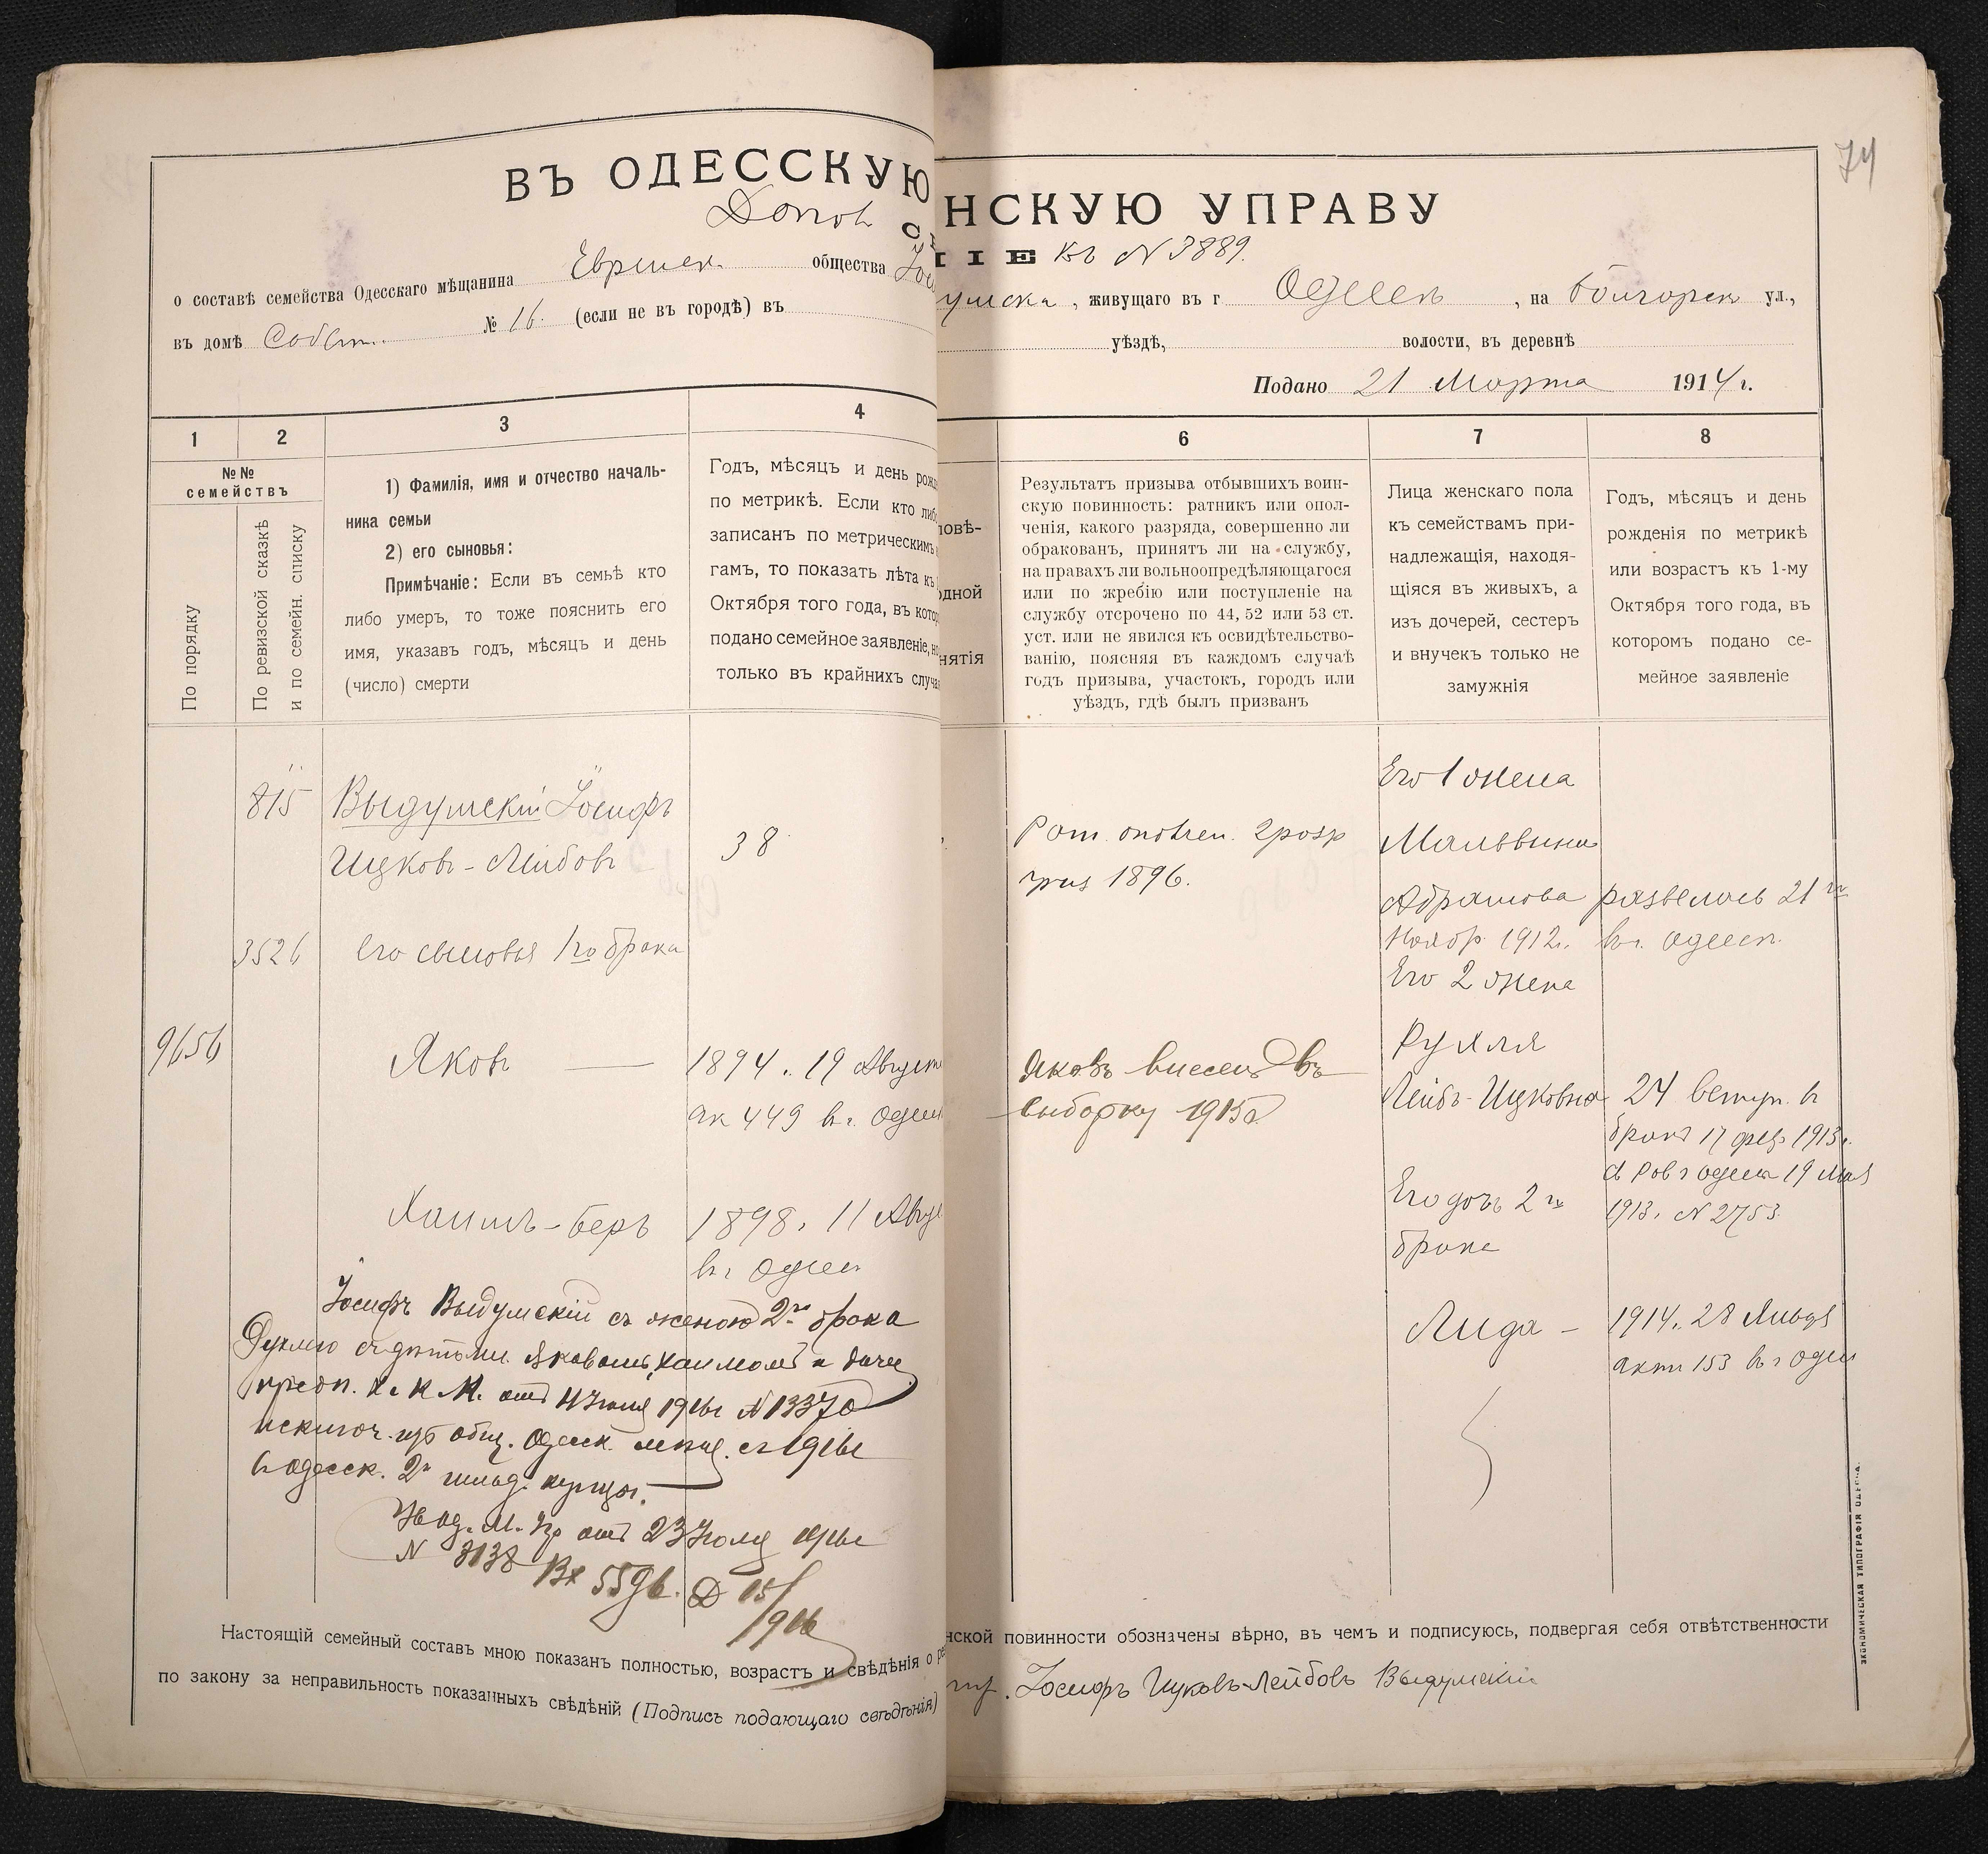 74
ВЪ ОДЕССКУЮ
НСКУЮ УПРАВУ
НІЕ къ № 3889.
о составѣ семейства Одесскаго мѣщанина Еврейск. общества
, живущаго въ г Одессѣ , на Болгарск ул.,
въ домѣ Собств. № 16. (если не въ городѣ) въ
уѣздѣ, волости, въ деревнѣ
Подано 21 Марта 1914 г.
1 2 3 4
№№
семействъ
По порядку
По ревизской сказкѣ
и по семейн. списку
1) Фамилія, имя и отчество началь-
ника семьи
2) его сыновья:
Примѣчаніе: Если въ семьѣ кто
либо умеръ, то тоже пояснить его
имя, указавъ годъ, мѣсяцъ и день
(число) смерти
Годъ, мѣсяцъ и день рожд
по метрикѣ. Если кто либ
записанъ по метрическимъ
гамъ, то показать лѣта къ
Октября того года, въ котор
подано семейное заявленіе, но
только въ крайнихъ случа
815 Выдумскій Іосифъ
Ицковъ-Лейбовъ 38
3526 Его сыновья 1го брака
9656 Яковъ — 1894. 19 Августа
ак 449 в г. Одес
Хаимъ-Беръ 1898. 11 Авгу
в г Одес
Іосифъ Выдумскій съ женою 2го брака
съ дѣтьми Яковомъ, Хаимомъ и
предп. Х. К. П. отъ 1916г № 13370
исключ. изъ общ. Одесск. мѣщ. съ 1916г
в Одесск. 2й гильд. купцы.
отъ 23 Іюля 1916г
№ 3138 Вх 5596. Д 15/1916
Настоящій семейный составъ мною показанъ полностью, возрастъ и свѣдѣнія о
по закону за неправильность показанныхъ свѣдѣній (Подпись подающаго свѣдѣнія)
6 7 8
повѣ-
одной
нятія
Результатъ призыва отбывшихъ воин-
скую повинность: ратникъ или опол-
ченія, какого разряда, совершенно ли
обракованъ, принятъ ли на службу,
на правахъ ли вольноопредѣляющагося
или по жребію или поступленіе на
службу отсрочено по 44, 52 или 53 ст.
уст. или не явился къ освидѣтельство-
ванію, поясняя въ каждомъ случаѣ
годъ призыва, участокъ, городъ или
уѣздъ, гдѣ былъ призванъ
Лица женскаго пола
къ семействамъ при-
надлежащія, находя-
щіяся въ живыхъ, а
изъ дочерей, сестеръ
и внучекъ только не
замужнія
Годъ, мѣсяцъ и день
рожденія по метрикѣ
или возрастъ къ 1-му
Октября того года, въ
котором подано се-
мейное заявленіе
Рат. ополчен. 2 разр
приз 1896.
Яковъ внесенъ въ
выборку 1915г
Его 1 жена
Мальвина
Абрамова развелась 21го
Ноябр 1912г. в г. Одессѣ
Его 2 жена
Рухля
Лейбъ-Ицковна 24 вступ. в
бракъ 17 фев 1913г.
19 Мая
1913. № 2753
Его дочь 2го
брака
Лида — 1914. 28 Января
акт 153 в г Одес
нской повинности обозначены вѣрно, въ чемъ и подписуюсь, подвергая себя отвѣтственности
Іосифъ Ицковъ-Лейбовъ Выдумскій
ЭКОНОМИЧЕСКАЯ ТИПОГРАФІЯ ОДЕССА.